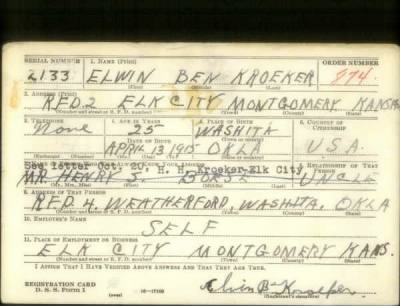 SERIAL NUMBER 1. NAME (Print) ORDER NUMBER
2133 ELWIN BEN KROEKER 974
(First) (Middle) (Last)
2. ADDRESS (Print)
RFD.2 ELK CITY MONTGOMERY KANSAS
(Number and street or R. F. D. number) (Town) (County) (State)
3. TELEPHONE 4. AGE IN YEARS 5. PLACE OF BIRTH 6. COUNTRY OF CITIZENSHIP
None 25 WASHITA
DATE OF BIRTH
APRIL 13 1915 OKLA U.S.A.
See letter Oct. 20, H. H. Kroeker-Elk City
8. RELATIONSHIP OF THAT PERSON
MR HENRY J. UNCLE
(Mr., Mrs., Miss) (First) (Middle) (Last)
9. ADDRESS OF THAT PERSON
RFD. 4. WEATHERFORD, WASHITA, OKLA
(Number and street or R. F. D. number) (Town) (County) (State)
10. EMPLOYER'S NAME
SELF
11. PLACE OF EMPLOYMENT OR BUSINESS
ELK CITY MONTGOMERY KANS.
(Number and street or R. F. D. number) (Town) (County) (State)
I AFFIRM THAT I HAVE VERIFIED ABOVE ANSWERS AND THAT THEY ARE TRUE.
REGISTRATION CARD
D. S. S. Form 1 (over) 16-17105 Elwin Ben Kroeker
(Registrant's signature)